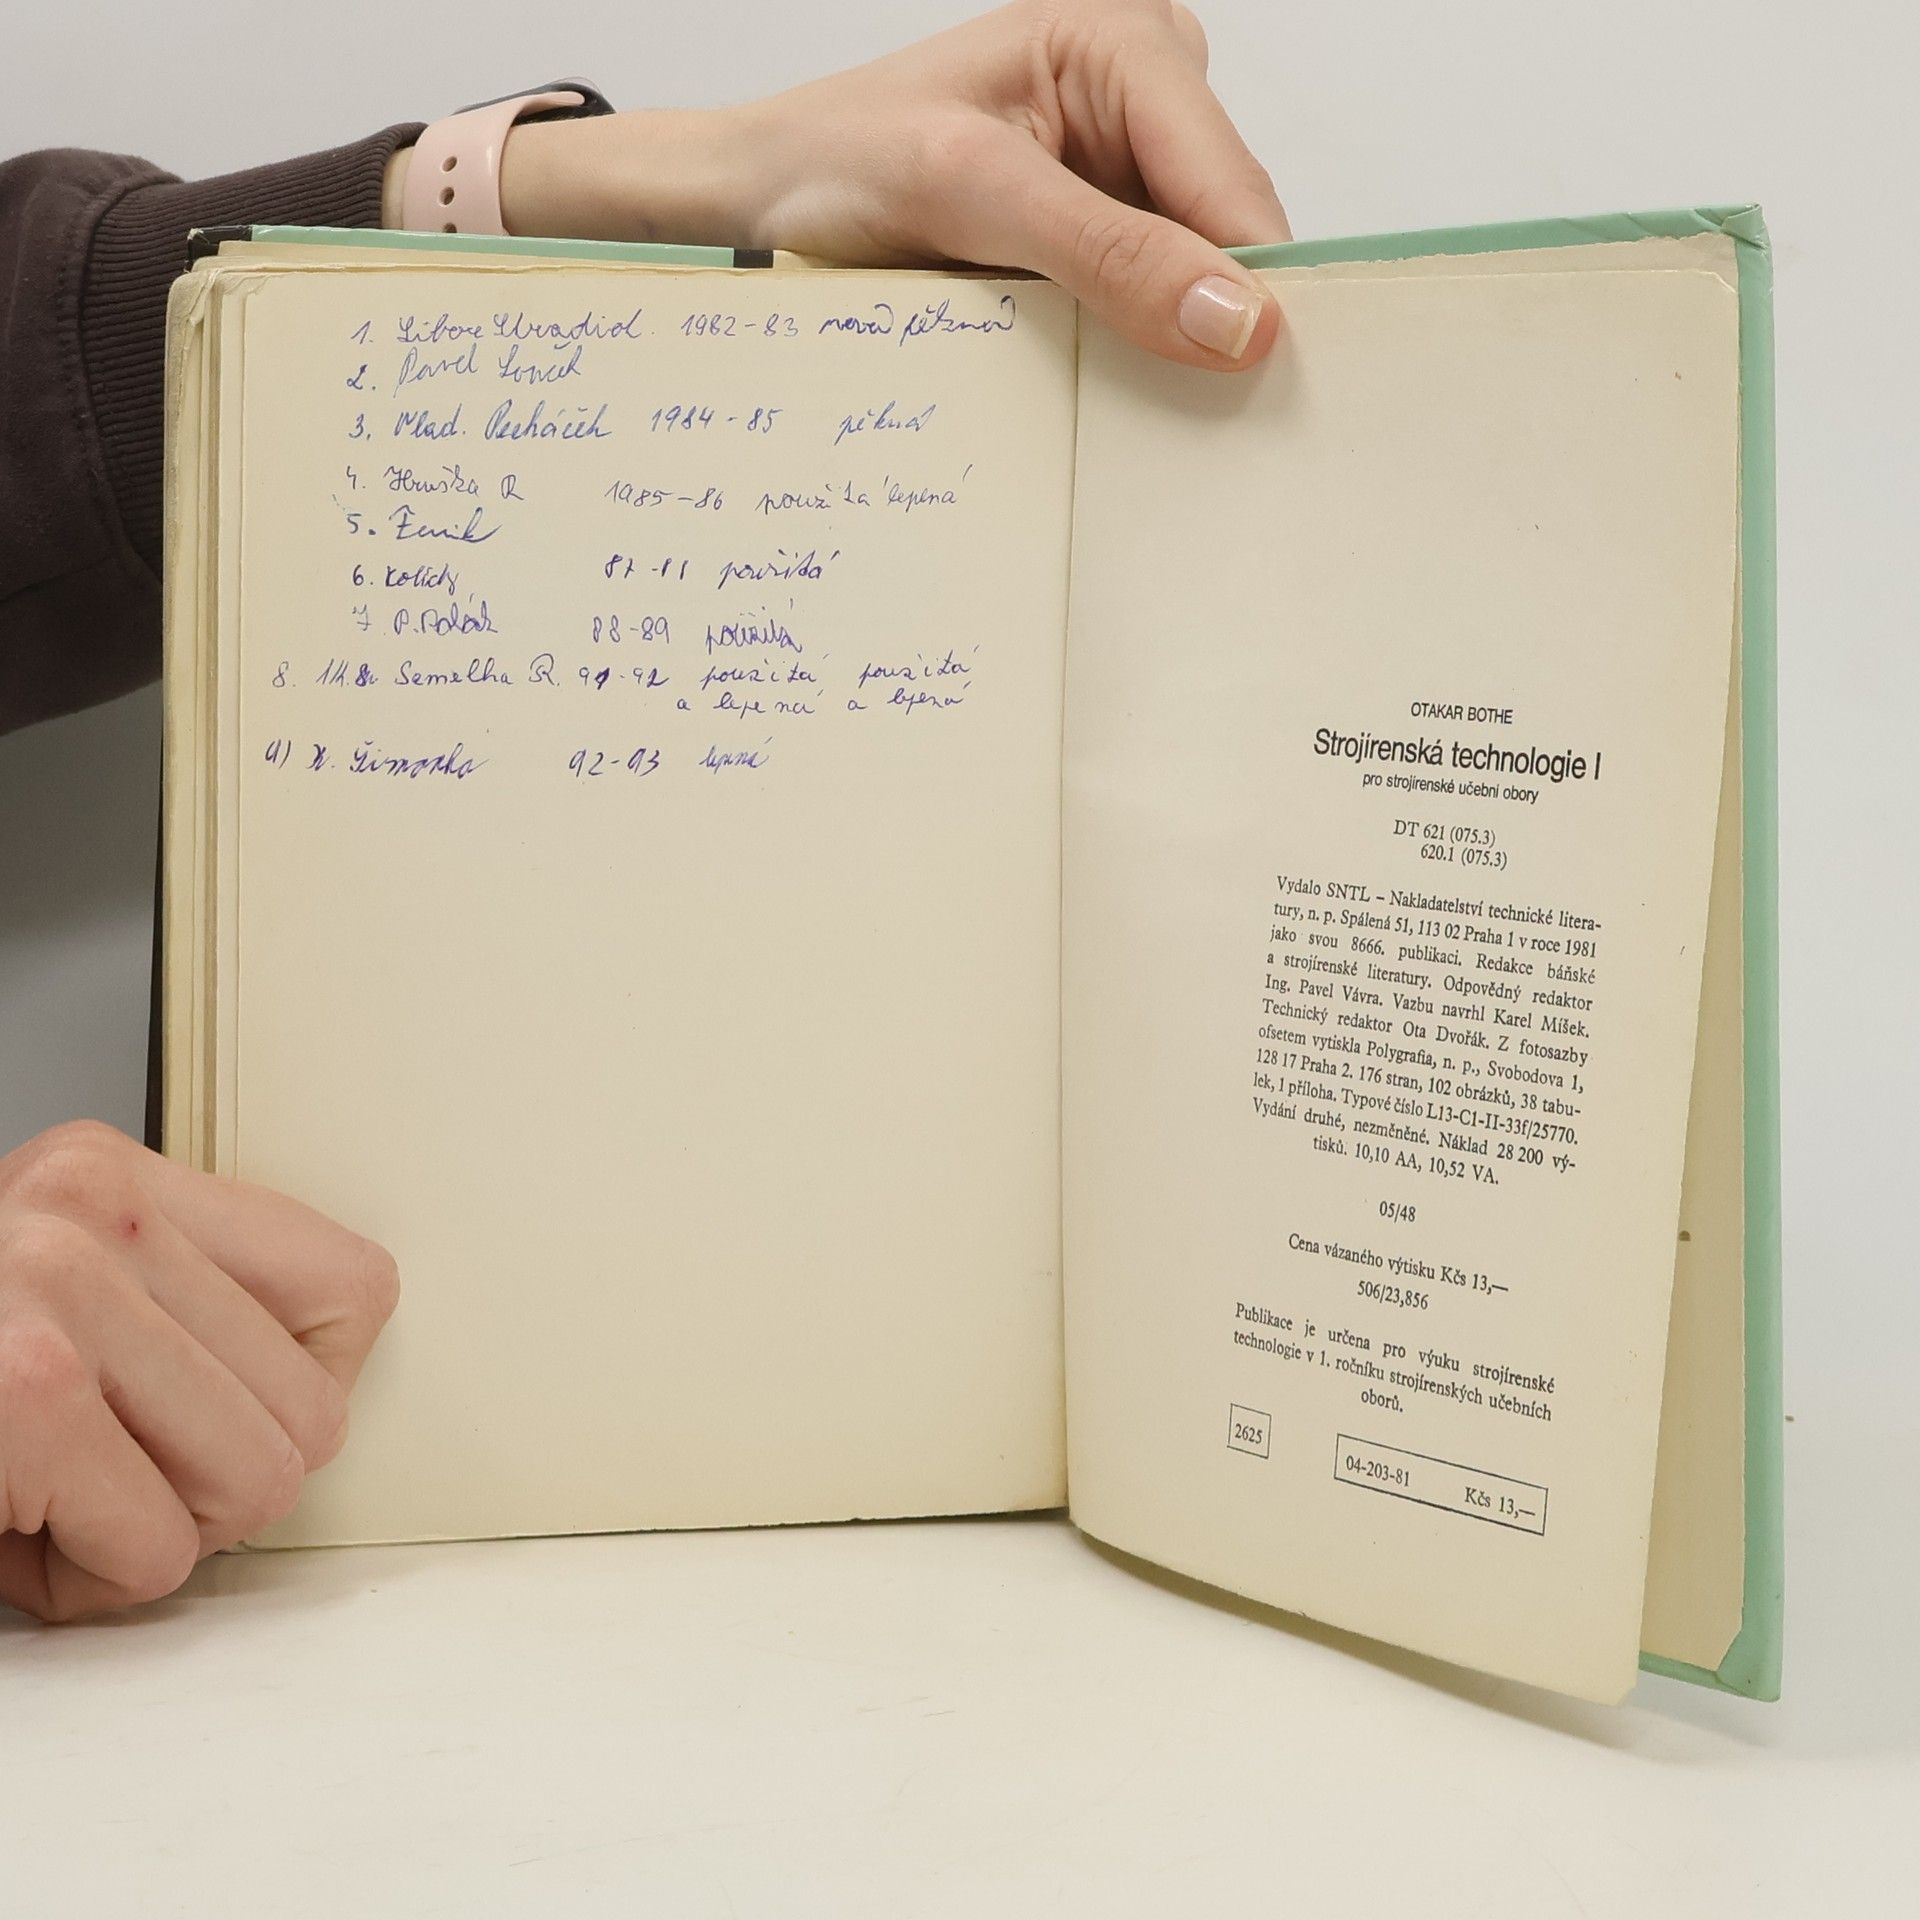 1. Libor 1982-83 nová pěkná
2. Pavel
3. Vlad. Pecháček 1984-85 pěkná
4. Hruška R 1985-86 použitá lepená
5. Ženík
6. 87-88 použitá
7 P. Polák 88-89 použitá
8. Semelka R. 91-92 použitá použitá
a lepená a lepená
9) Šimonka 92-93 lepená
OTAKAR BOTHE
Strojírenská technologie I
pro strojírenské učební obory
DT 621 (075.3)
620.1 (075.3)
Vydalo SNTL – Nakladatelství technické litera-
tury, n. p. Spálená 51, 113 02 Praha 1 v roce 1981
jako svou 8666. publikaci. Redakce báňské
a strojírenské literatury. Odpovědný redaktor
Ing. Pavel Vávra. Vazbu navrhl Karel Míšek.
Technický redaktor Ota Dvořák. Z fotosazby
ofsetem vytiskla Polygrafia, n. p., Svobodova 1,
128 17 Praha 2. 176 stran, 102 obrázků, 38 tabu-
lek, 1 příloha. Typové číslo L13-C1-II-33f/25770.
Vydání druhé, nezměněné. Náklad 28 200 vý-
tisků. 10,10 AA, 10,52 VA.
05/48
Cena vázaného výtisku Kčs 13,—
506/23,856
Publikace je určena pro výuku strojírenské
technologie v 1. ročníku strojírenských učebních
oborů.
2625
04-203-81 Kčs 13,—